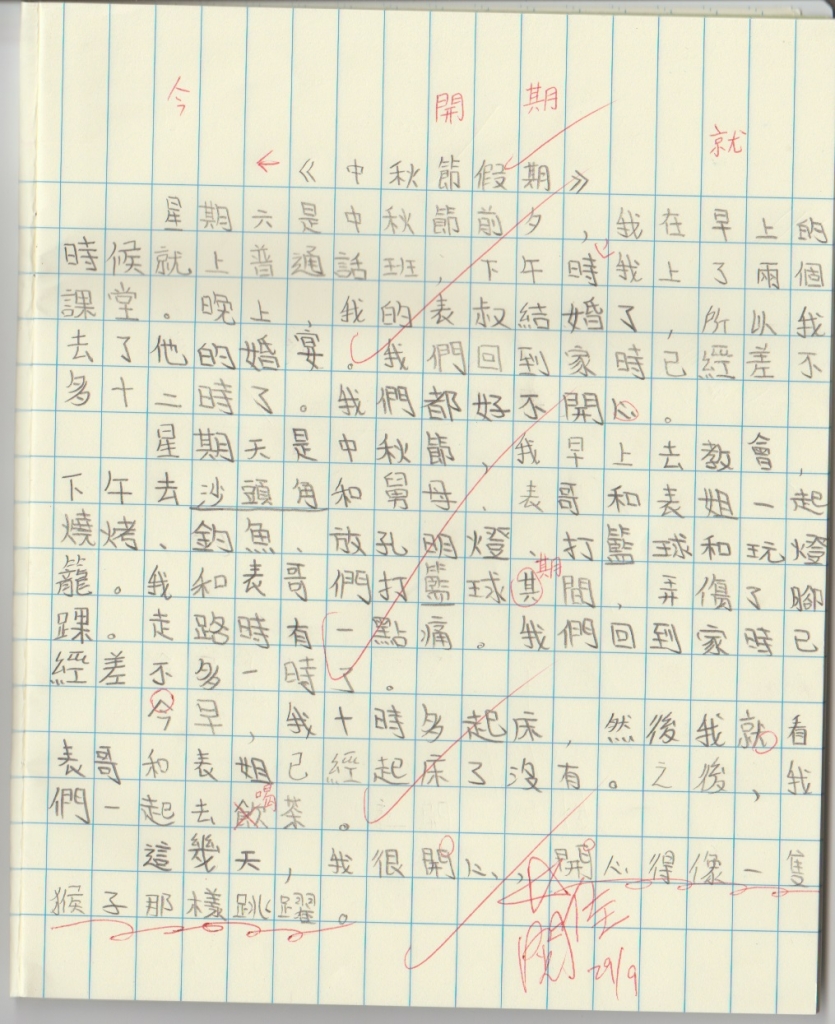 今 開 期 就
← 《中秋節假期》
星期六是中秋節前夕，我在早上的
時候就上普通話班，下午時我上了兩個
課堂。晚上，我的表叔結婚了，所以我
去了他的婚宴。我們回到家時已經差不
多十二時了。我們都好不開心。
星期天是中秋節，我早上去教會，
下午去沙頭角和舅母、表哥和表姐一起
燒烤、釣魚、放孔明燈、打籃球和玩燈
籠。我和表哥們打籃球其期間，弄傷了腳
踝。走路時有一點痛。我們回到家時已
經差不多一時了。
今早，我十時多起床，然後我就看
表哥和表姐已經起床了沒有。之後，我
們一起去飲喝茶。
這幾天，我很開心，開心得像一隻
猴子那樣跳躍。
閱 29/9